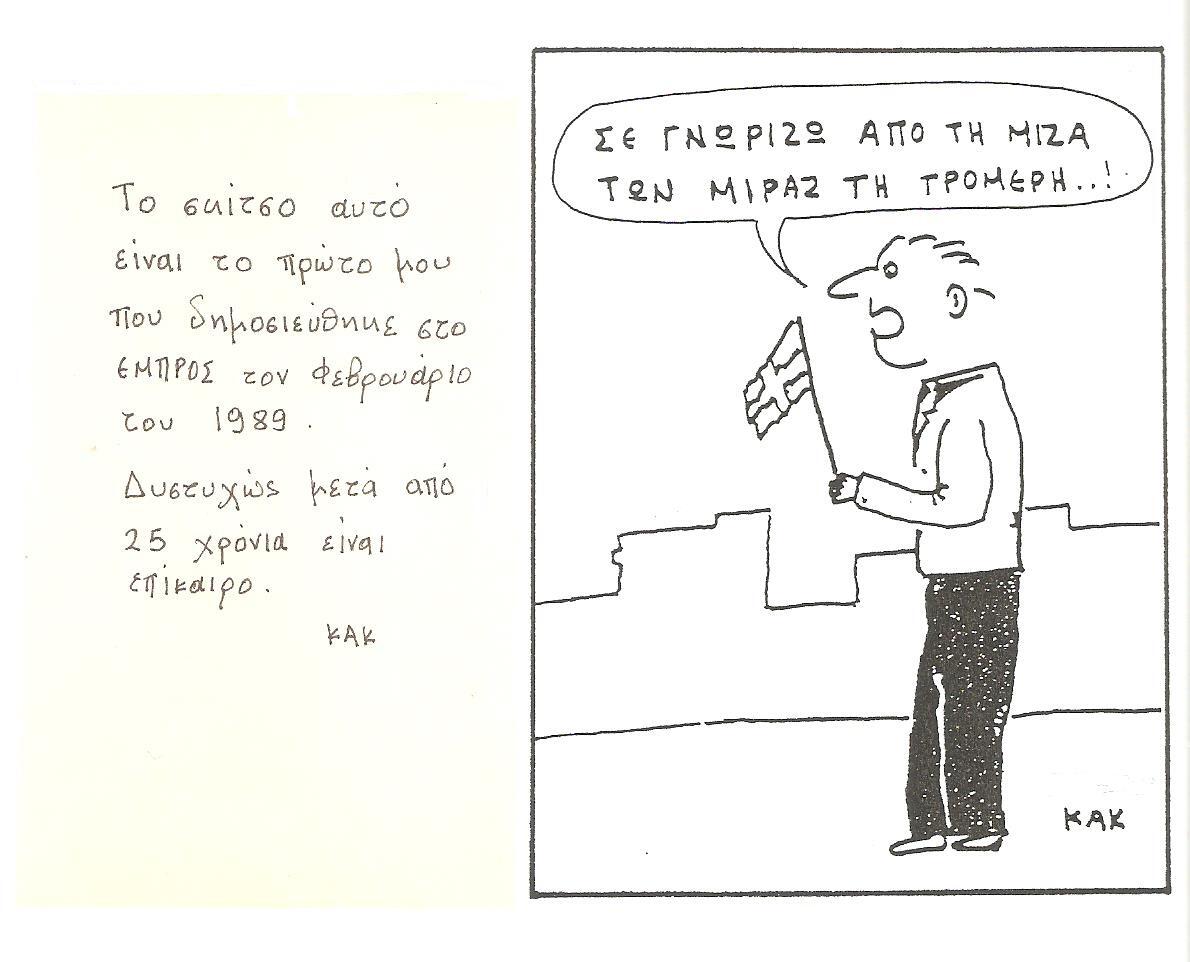 Το σκίτσο αυτό
είναι το πρώτο μου
που δημοσιεύθηκε στο
ΕΜΠΡΟΣ τον Φεβρουάριο
του 1989.
Δυστυχώς μετά από
25 χρόνια είναι
επίκαιρο.
ΚΑΚ
ΣΕ ΓΝΩΡΙΖΩ ΑΠΟ ΤΗ ΜΙΖΑ
ΤΩΝ ΜΙΡΑΖ ΤΗ ΤΡΟΜΕΡΗ...!
ΚΑΚ